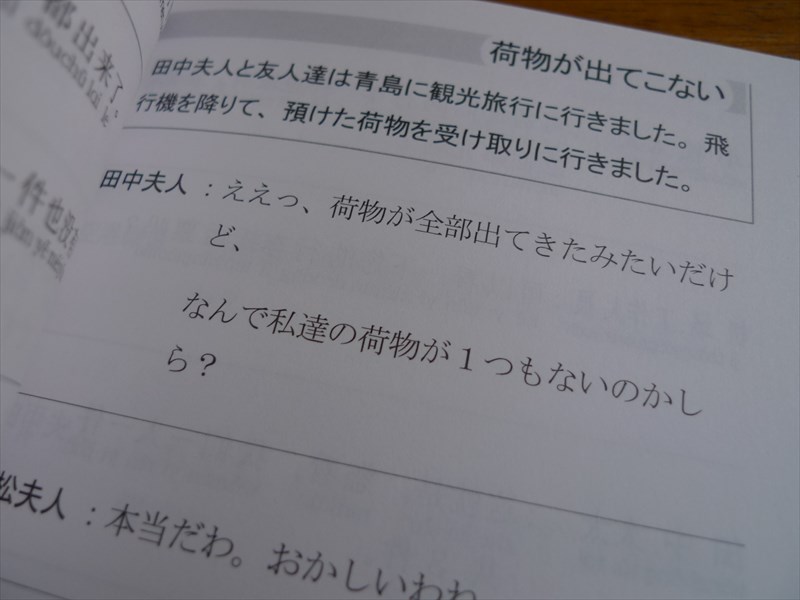 都出来了,
dōuchūlai le
一件也没
荷物が出てこない
田中夫人と友人達は青島に観光旅行に行きました。飛
行機を降りて、預けた荷物を受け取りに行きました。
田中夫人：ええっ、荷物が全部出てきたみたいだけ
ど、
なんで私達の荷物が1つもないのかし
ら？
松夫人：本当だわ。おかしいわね